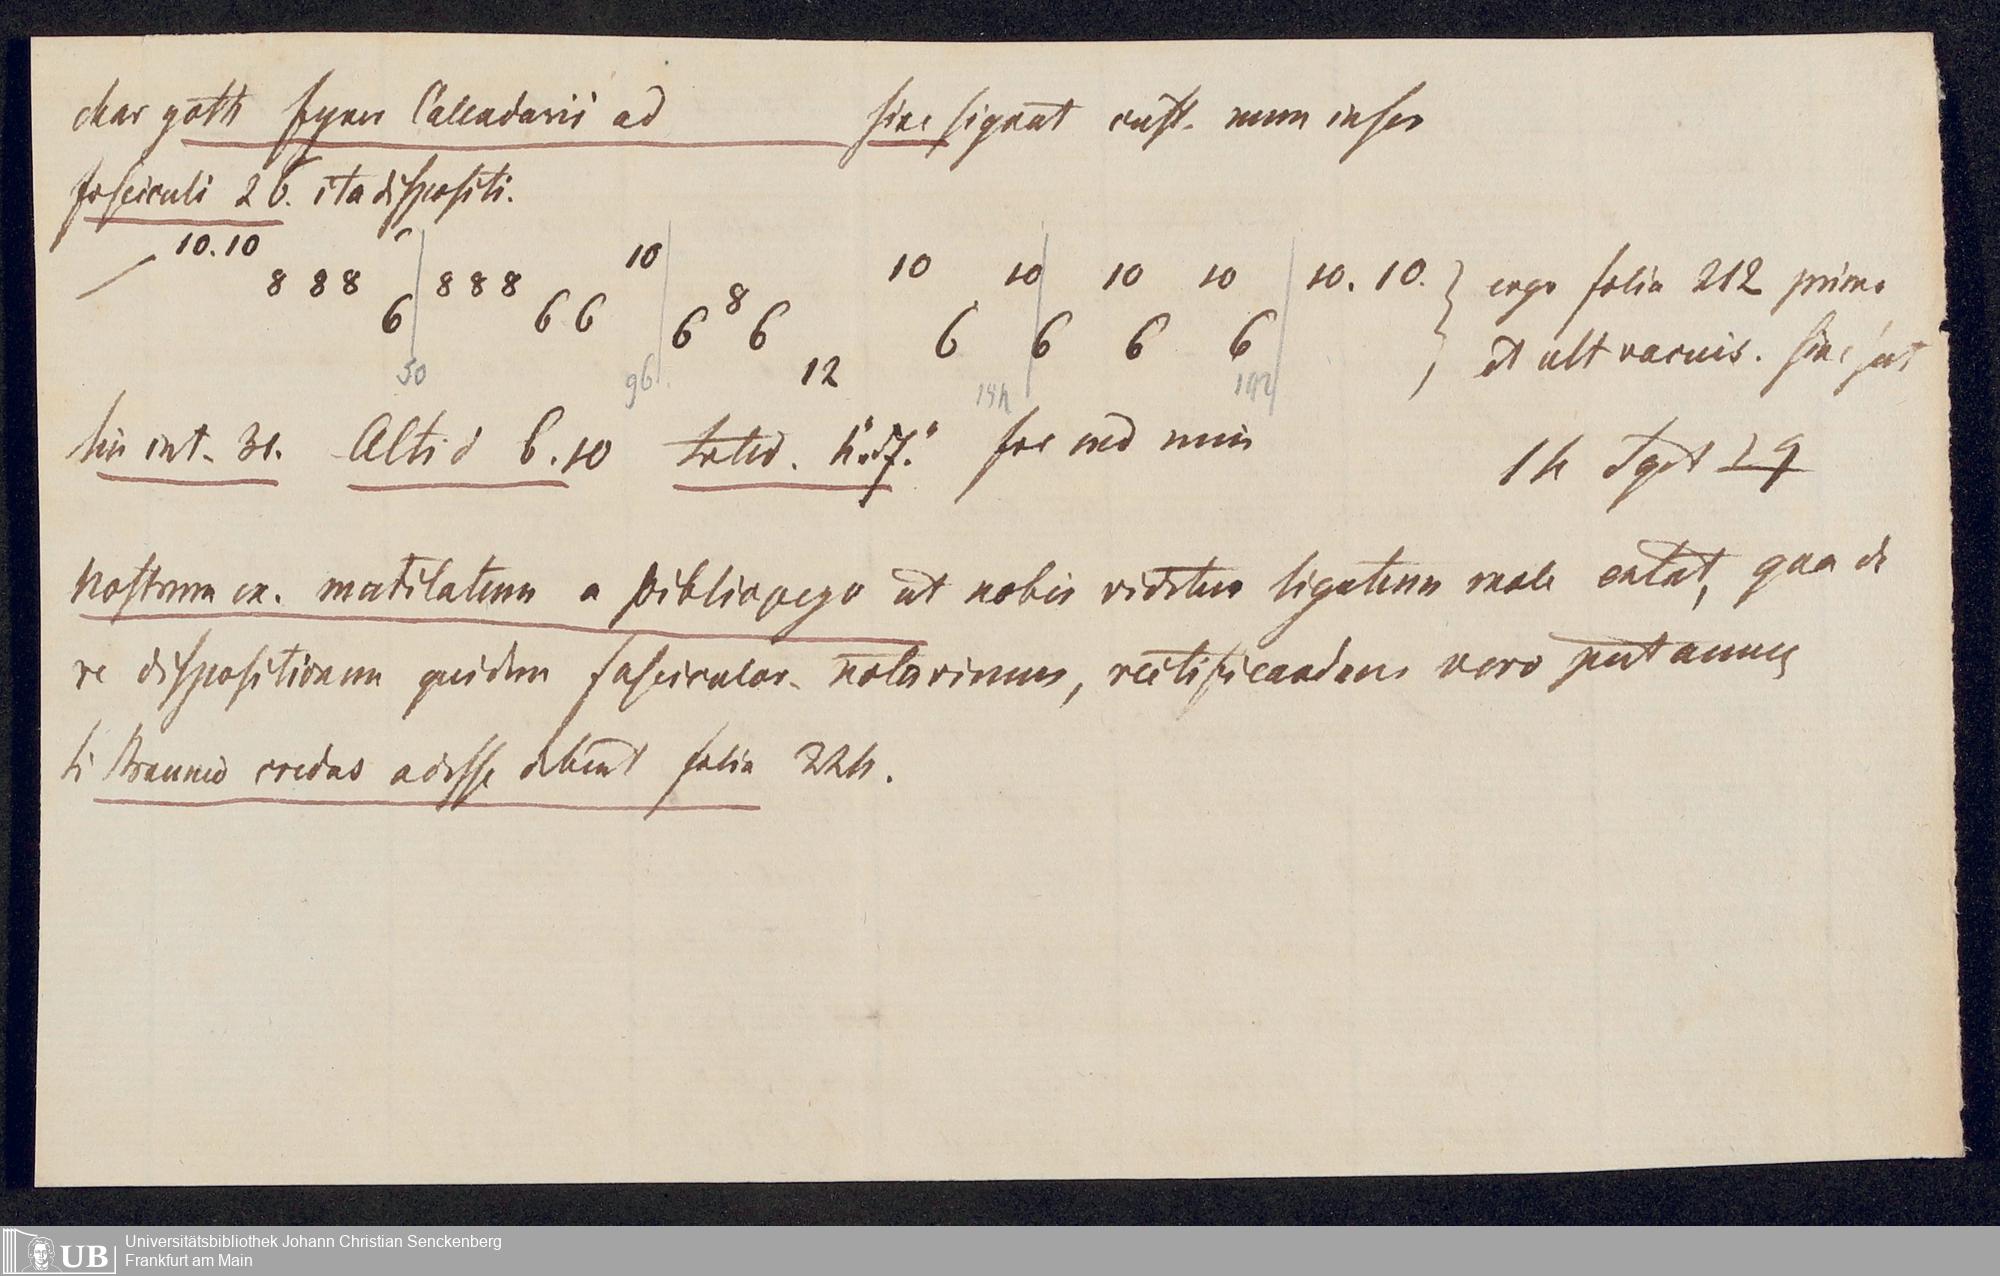 char goth typis Calendarii ad sine signat cust. num inser
fasciculi 26. ita dispositi.
10.10 8 8 8 6 8 8 8 6 6 10 6 8 6 12 10 6 10 6 10 6 10 6 10. 10. } ergo folia 212 primo
50 96 144 192 et ult vacuis. sine
lin int. 31. Altid 6.10 form med min
nostrum ex. mutilatum a bibliopego ut nobis videtur ligatum male extat, qua de
re dispositionem quidem fascicular. notavimus, rectificandam vero putamus
si Braunio credas adesse debent folia 224.
UB
Universitätsbibliothek Johann Christian Senckenberg
Frankfurt am Main